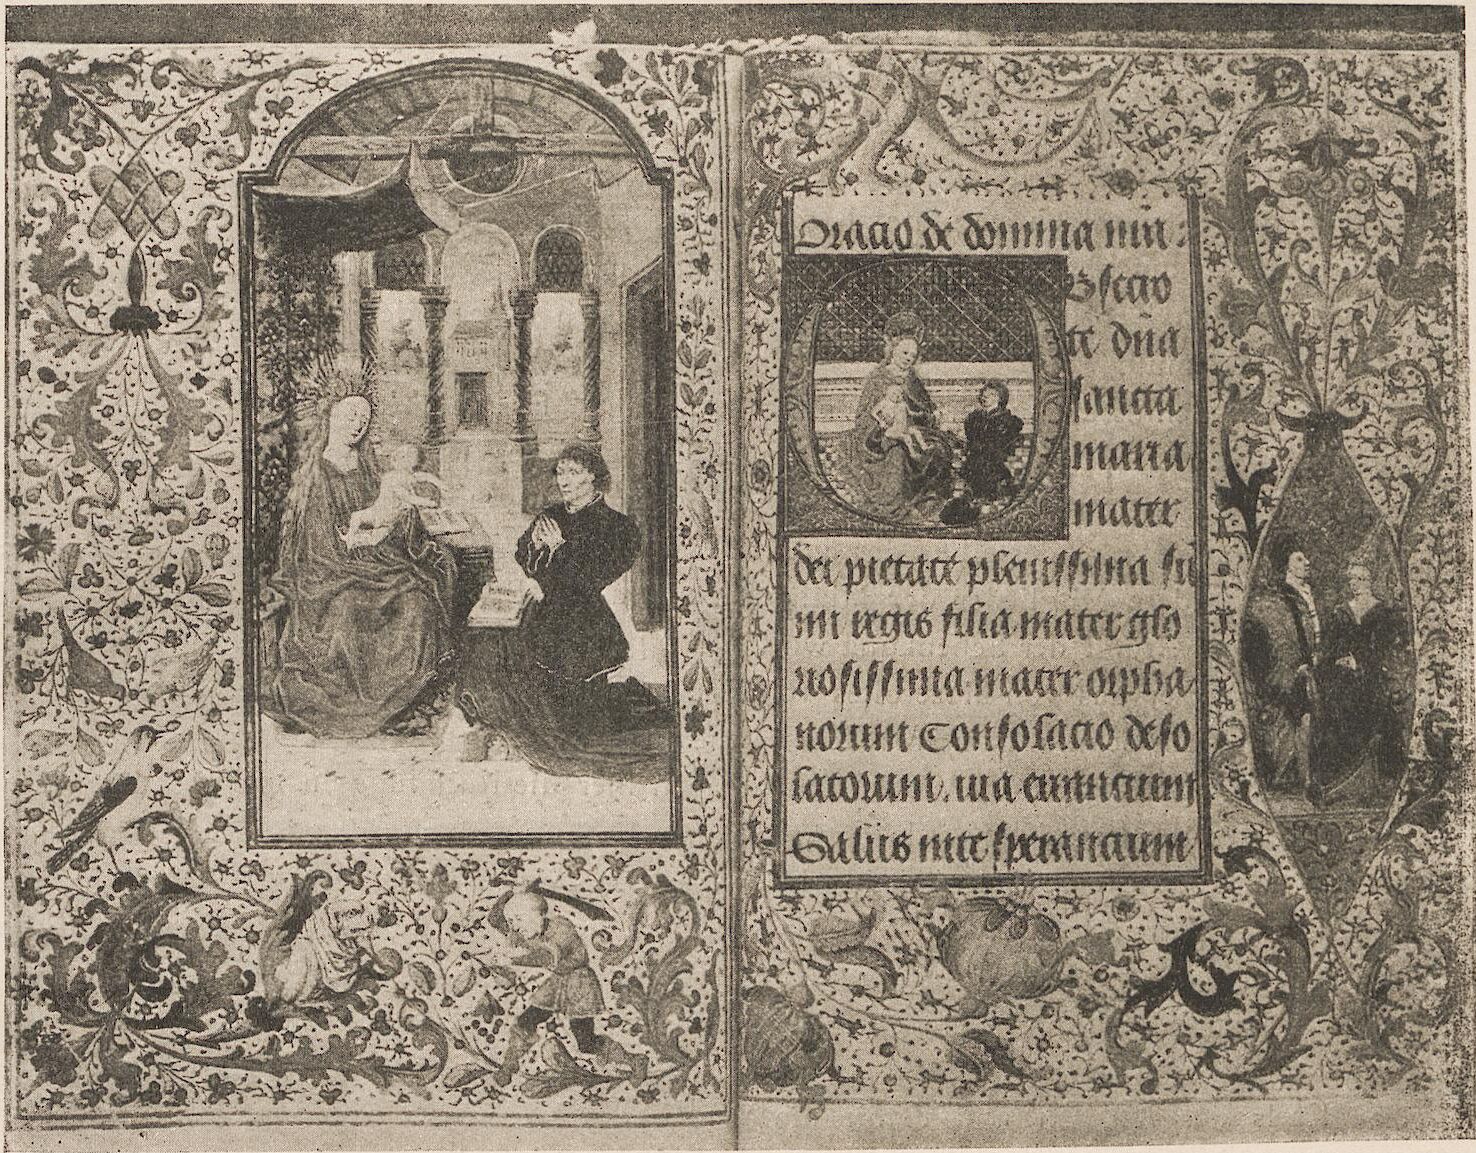 Oracio de domina nra:
Obsecro
te dna
sancta
maria
mater
dei pietate plenissima su
mi regis filia mater glo
riosissima mater orpha
norum Consolacio deso
latorum. via errancium
Salus in te sperancium